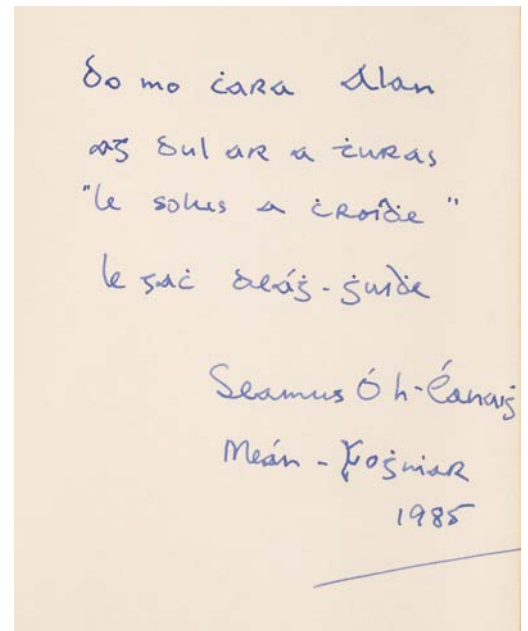 do mo ċara Alan
ag dul ar a ṫuras
"le solus a ċroiḋe"
le gaċ deáġ-ġuiḋe
Seamus Ó h-Éanaiġ
Meán-Foġṁar
1985